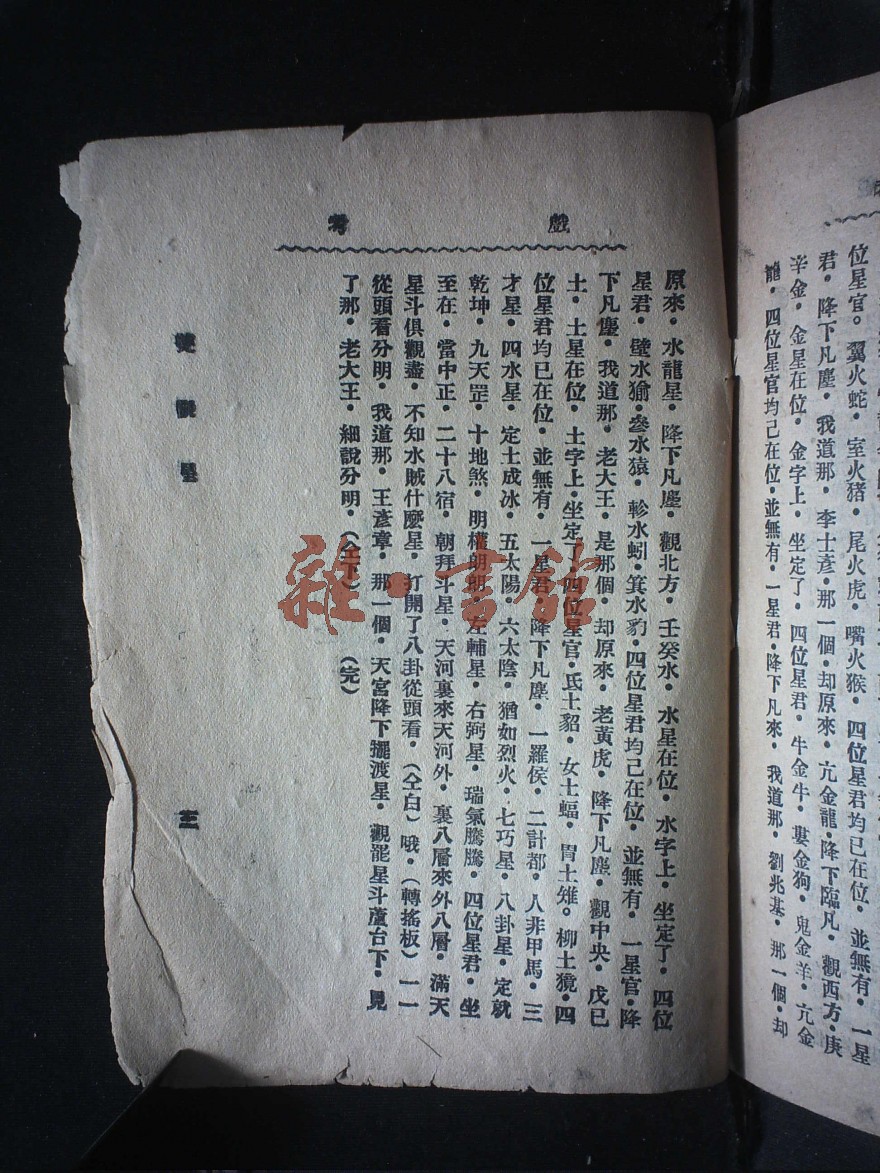 位星官。翼火蛇．室火猪．尾火虎．嘴火猴．四位星君均已在位．並無有．一星
君．降下凡塵．我道那．李士彥．那一個．却原來．亢金龍．降下臨凡．觀西方．庚
辛金．金星在位．金字上．坐定了．四位星君．牛金牛．婁金狗．鬼金羊．亢金
龍．四位星官均己在位．並無有．一星君．降下凡來．我道那．劉兆基．那一個．却
戲考
原來．水龍星．降下凡塵．觀北方．壬癸水．水星在位．水字上．坐定了．四位
星君．壁水㺄．參水猿．軫水蚓．箕水豹．四位星君均己在位．並無有．一星官．降
下凡塵．我道那．老大王．是那個．却原來．老黃虎．降下凡塵．觀中央．戊已
土．土星在位．土字上．坐定了．四位星官．氐土貂．女土蝠．胃土雉。柳土獍．四
位星君均已在位．並無有．一星君．降下凡塵．一羅侯．二計都．人非甲馬．三
才星．四水星．定土成冰．五太陽．六太陰．猶如烈火．七巧星．八卦星．定就
乾坤．九天罡．十地煞．明權朗朗．左輔星．右弼星．瑞氣騰騰．四位星君．坐
至在．當中正．二十八宿．朝拜斗星．天河裏來天河外．裏八層來外八層．滿天
星斗俱觀盡．不知水賊什麼星．打開了八卦從頭看．（仝白）哦．（轉搖板）一一
從頭看分明．我道那．王彥章．那一個．天宮降下擺渡星．觀罷星斗蘆台下．見
了那．老大王．細說分明．（仝下）（完）
雙觀星
三
雜·書館